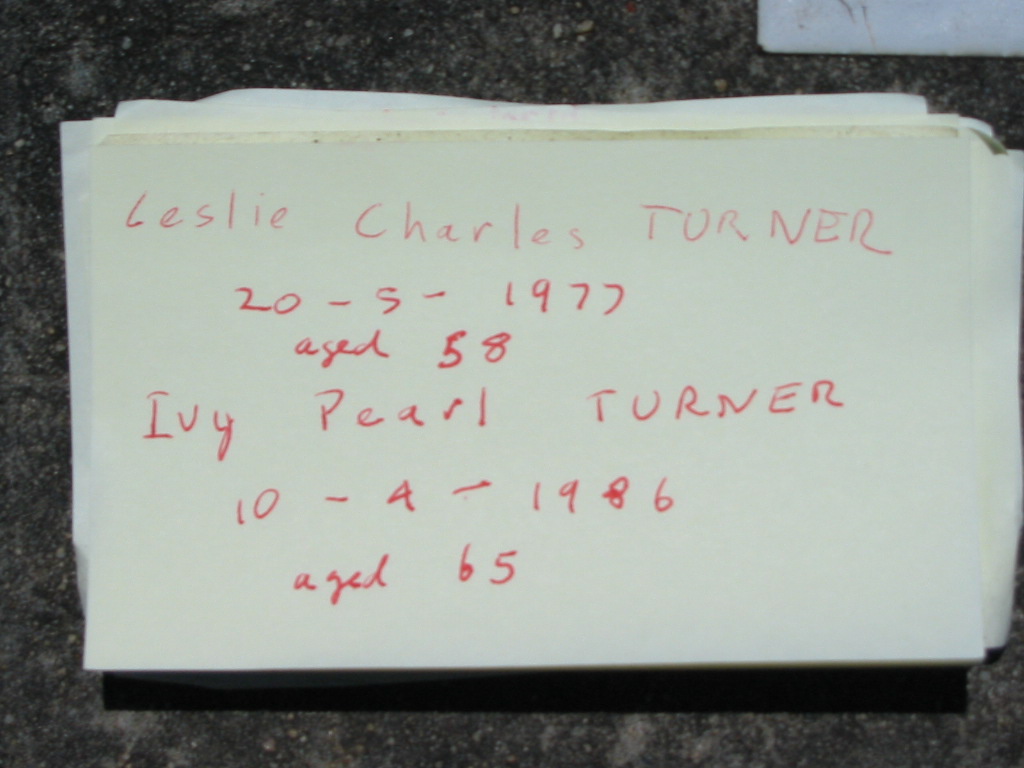 Leslie Charles TURNER
20 - 5 - 1977
aged 58
Ivy Pearl TURNER
10 - 4 - 1986
aged 65